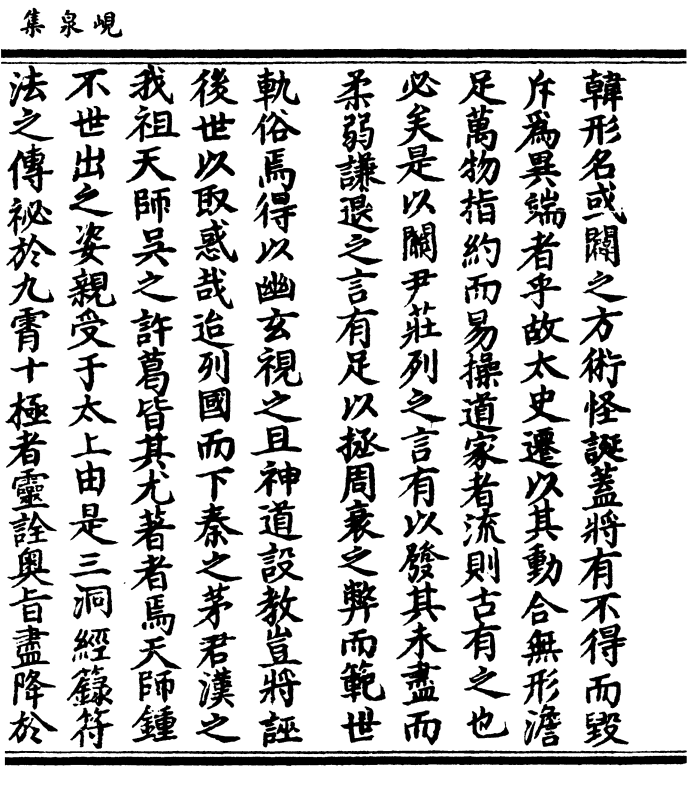 峴泉集
韓形名或闢之方術怪誕蓋將有不得而毀
斥爲異端者乎故太史遷以其動合無形澹
足萬物指約而易操道家者流則古有之也
必矣是以關尹莊列之言有以發其未盡而
柔弱謙退之言有足以拯周衰之弊而範世
軌俗焉得以幽玄視之且神道設教豈將誣
後世以取惑哉迨列國而下秦之茅君漢之
我祖天師吳之許葛皆其尤著者焉天師鍾
不世出之姿親受于太上由是三洞經籙符
法之傳祕於九霄十極者靈詮奥旨盡降於